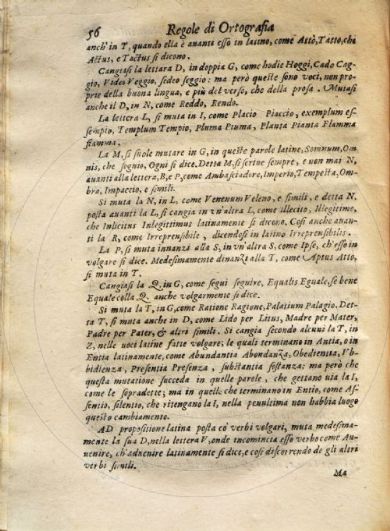 56 Regole di Ortografia
anch'in T, quando ella è auante esso in latino, come Attò, Tatto, chi
Actus, e Tactus si dicono.
Cangiasi la lettara D, in doppia G, come hodie Hoggi, Cado Cag-
gio, Video Veggio, sedeo seggio: ma però queste sono voci, non pro-
prie della buona lingua, e più del verso, che della prosa. Mutasi
anche il D, in N, come Reddo, Rendo.
La lettera L, si muta in I, come Placio Piaccio, exemplum es-
sempio, Templum Tempio, Pluma Piuma, Planta Pianta Flamma
fiamma.
La M, si suole mutare in G, in queste parole latine, Somnum, Om
nis, che sogno, Ogni si dice, Detta M, si scriue sempre, e non mai N,
auanti alla lettera, B, e P, come Ambasciadore, Imperio, Tempesta, Om-
bra, Impaccio, e simili.
Si muta la N, in L, come Venenum Veleno, e simili, e detta N,
posta auanti la L, si cangia in vn'altra L, come illecito, Illegitimo,
che Inlicitus Inlegittimus latinamente si dicono. Così anche auan-
ti la R, come Irreprensibile, dicendosi in latino Irreprensibilis.
La P, si muta innanzi alla S, in vn'altra S, come Ipse, ch'esso in
volgare si dice. Medesimamente dinanzi alla T, come Aptus Atto,
si muta in T.
Cangiasi la Q, in G, come sequi seguire, Equalis Eguale, se bene
Equale colla Q. anche volgarmente si dice.
Si muta la T, in G, come Ratione Ragione, Palatium Palagio. Det-
ta T, si muta anche in D, come Lido per Litus, Madre per Mater,
Padre per Pater, & altri simili. Si cangia secondo alcuni la T, in
Z, nelle voci latine fatte volgare; le quali terminano in Antia, o in
Entia latinamente, come Abundantia Abondanza, Obedientia, Vb-
bidienza, Presentia Presenza, substantia sostanza; ma però che
questa mutatione succeda in quelle parole, che gettano uia la I,
come le sopradette; ma in quelle che terminano in Entio, come As-
sentio, silentio, che ritengano la I, nella penultima non habbia luogo
questo cambiamento.
AD propositione latina posta co' verbi volgari, muta medesima-
mente la sua D, nella lettera V, onde incomincia esso verbo come Au-
uenire, ch'aduenire latinamente si dice, e così discorrendo de gli altri
verbi simili.
Ma